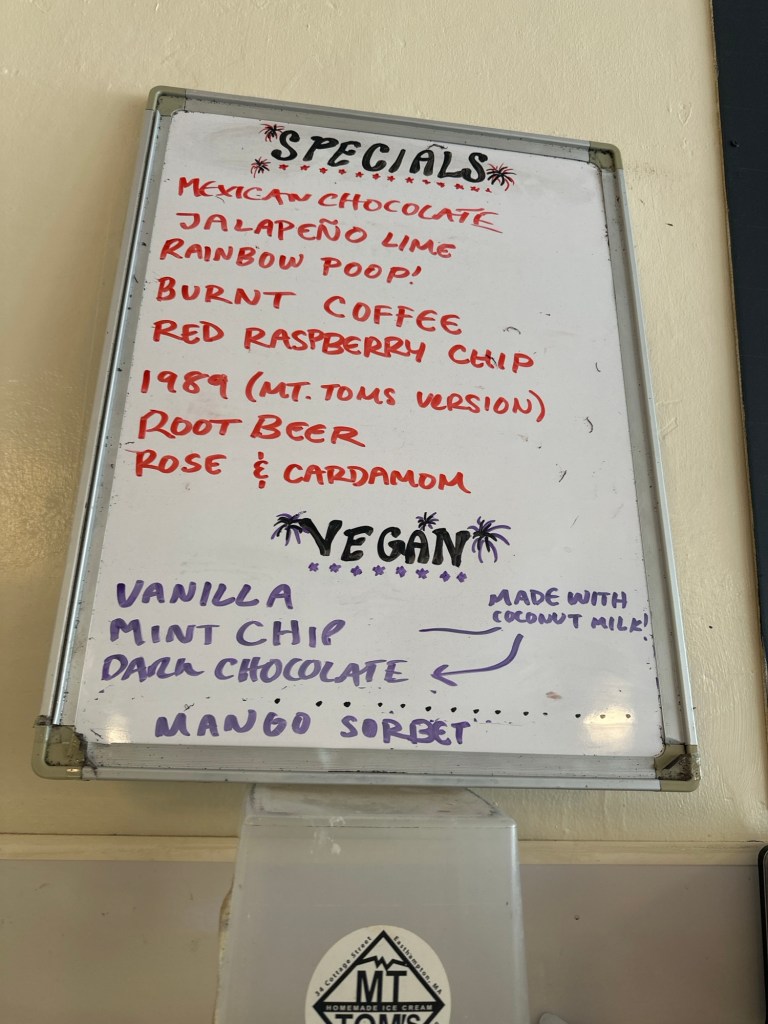 SPECIALS
MEXICAN CHOCOLATE
JALAPEÑO LIME
RAINBOW POOP!
BURNT COFFEE
RED RASPBERRY CHIP
1989 (MT. TOMS VERSION)
ROOT BEER
ROSE & CARDAMOM
VEGAN
VANILLA
MINT CHIP
DARK CHOCOLATE
MADE WITH
COCONUT MILK!
MANGO SORBET
34 Cottage Street
Easthampton, MA
MT
HOMEMADE ICE CREAM
TOM'S